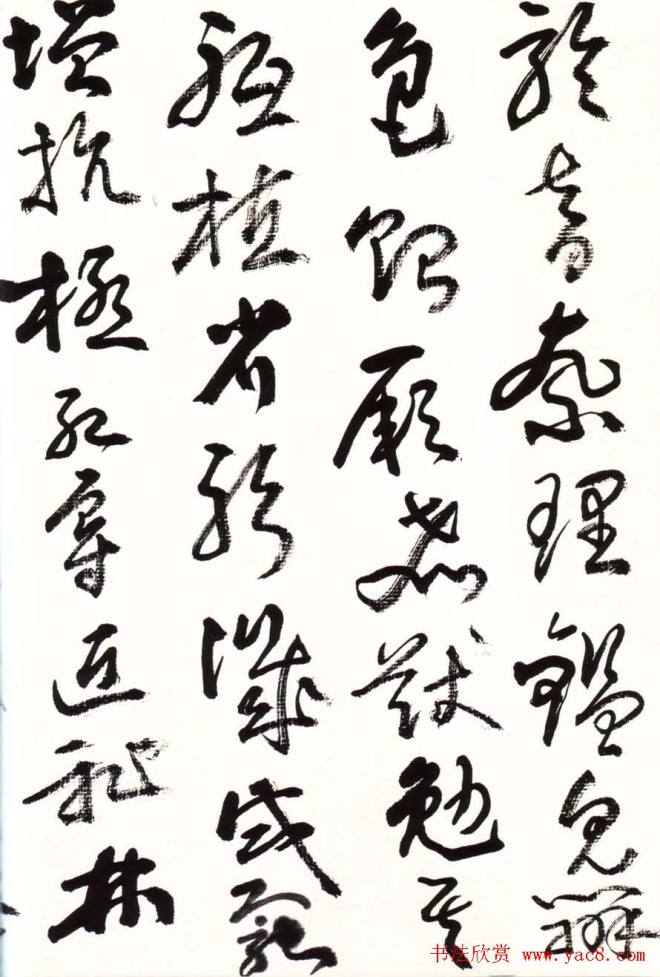 聆音察理鉴皃辨
色贻厥嘉猷勉其
祗植省躬讥诫宠
增抗极殆辱近耻林
书法欣赏 www.yac8.com